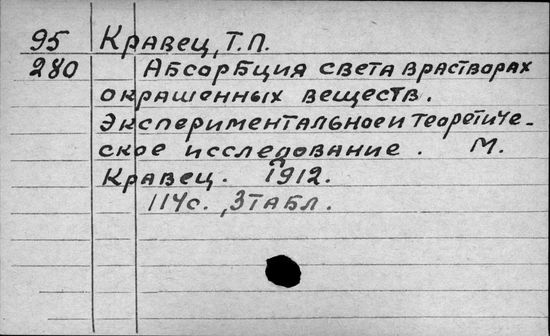 95 Кравец, Т.П.
280 Абсорбция света в растворах
окрашенных веществ.
Экспериментальное и теоретиче-
ское исследование. М.
Кравец. 1912.
114с., 3 табл.